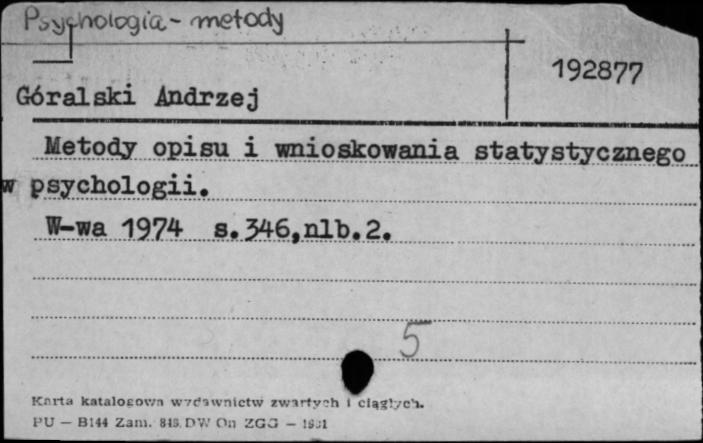 Psychologia - metody
192877
Góralski Andrzej
Metody opisu i wnioskowania statystycznego
w psychologii.
W-wa 1974 s.346,nlb.2.
5
Karta katalogowa wydawnictw zwartych i ciągłych.
PU — B144 Zam. DW On ZGG — 1981